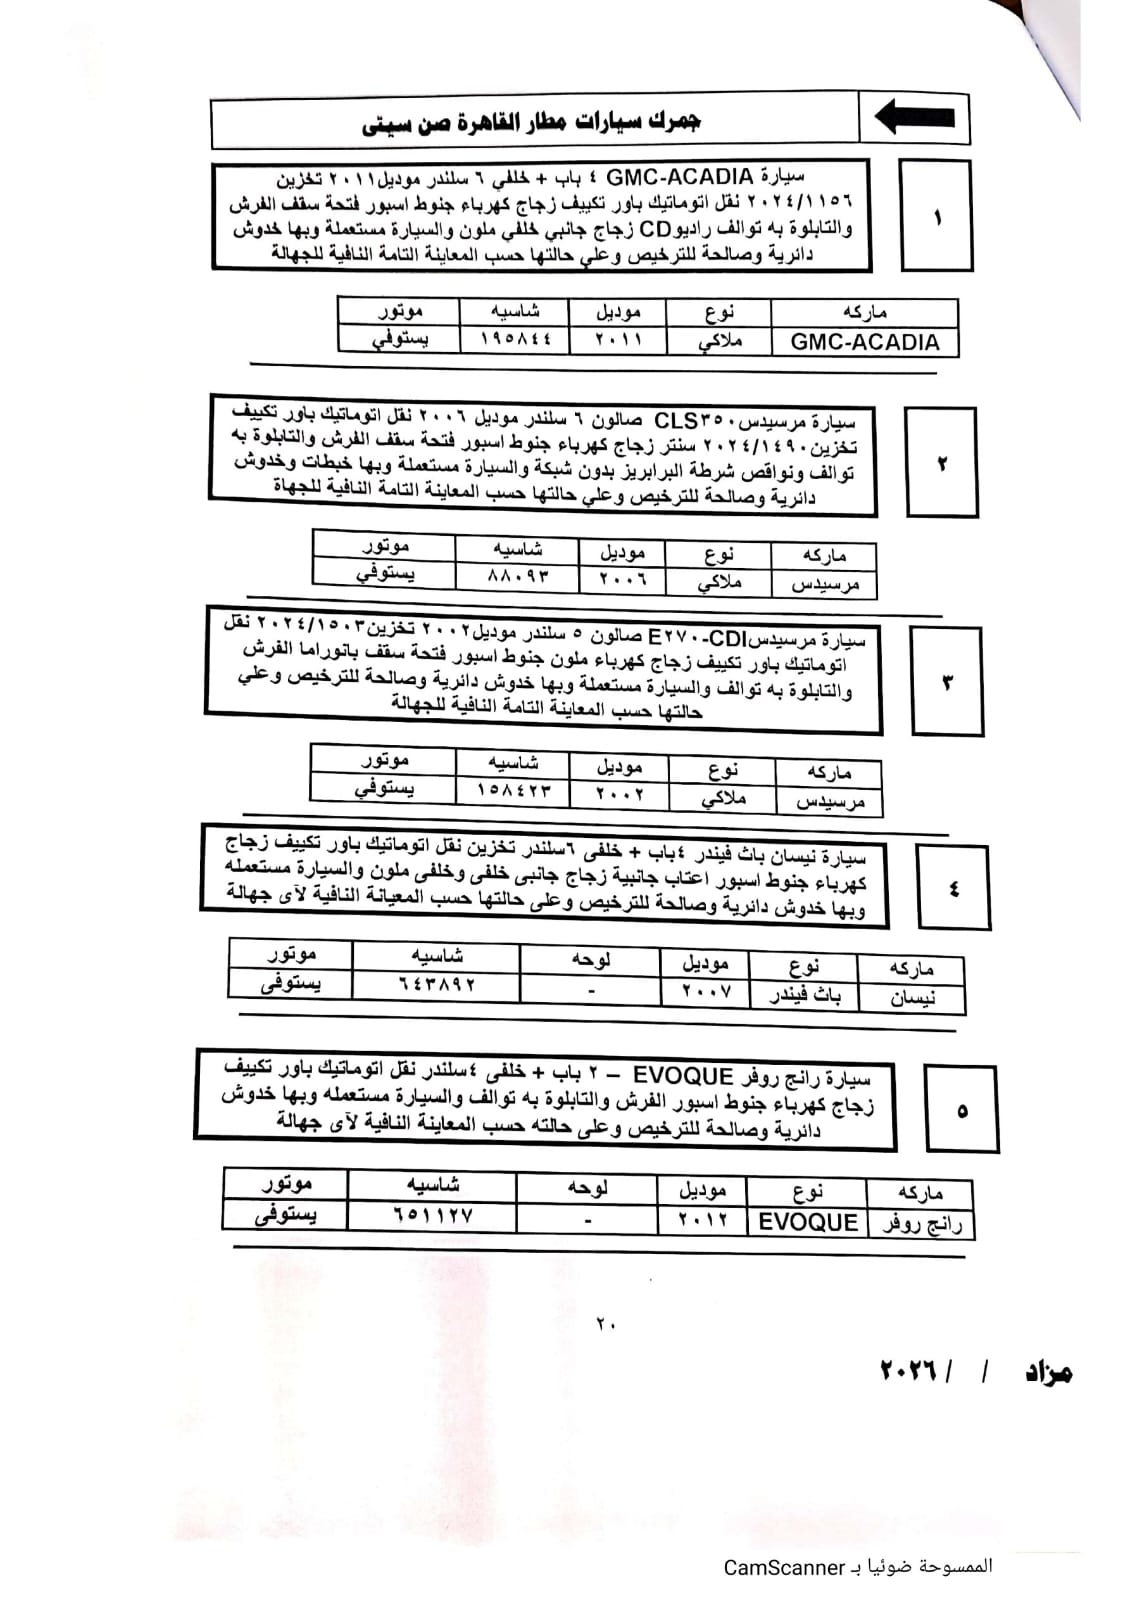 جمرك سيارات مطار القاهرة صن سيتى
١
سيارة GMC-ACADIA ٤ باب + خلفي ٦ سلندر موديل٢٠١١ تخزين
٢٠٢٤/١١٥٦ نقل اتوماتيك باور تكييف زجاج كهرباء جنوط اسبور فتحة سقف الفرش
والتابلوة به توالف راديوCD زجاج جانبي خلفي ملون والسيارة مستعملة وبها خدوش
دائرية وصالحة للترخيص وعلي حالتها حسب المعاينة التامة النافية للجهالة
ماركه نوع موديل شاسيه موتور
GMC-ACADIA ملاكي ٢٠١١ ١٩٥٨٤٤ يستوفي
٢
سيارة مرسيدس٣٥٠CLS صالون ٦ سلندر موديل ٢٠٠٦ نقل اتوماتيك باور تكييف
تخزين٢٠٢٤/١٤٩٠ سنتر زجاج كهرباء جنوط اسبور فتحة سقف الفرش والتابلوة به
توالف ونواقص شرطة البرابريز بدون شبكة والسيارة مستعملة وبها خبطات وخدوش
دائرية وصالحة للترخيص وعلي حالتها حسب المعاينة التامة النافية للجهاة
ماركه نوع موديل شاسيه موتور
مرسيدس ملاكي ٢٠٠٦ ٨٨٠٩٣ يستوفي
٣
سيارة مرسيدسE٢٧٠-CDI صالون ٥ سلندر موديل٢٠٠٢ تخزين٢٠٢٤/١٥٠٣ نقل
اتوماتيك باور تكييف زجاج كهرباء ملون جنوط اسبور فتحة سقف بانوراما الفرش
والتابلوة به توالف والسيارة مستعملة وبها خدوش دائرية وصالحة للترخيص وعلي
حالتها حسب المعاينة التامة النافية للجهالة
ماركه نوع موديل شاسيه موتور
مرسيدس ملاكي ٢٠٠٢ ١٥٨٤٢٣ يستوفي
٤
سيارة نيسان باث فيندر ٤باب + خلفى ٦سلندر تخزين نقل اتوماتيك باور تكييف زجاج
كهرباء جنوط اسبور اعتاب جانبية زجاج جانبى خلفى وخلفى ملون والسيارة مستعمله
وبها خدوش دائرية وصالحة للترخيص وعلى حالتها حسب المعيانة النافية لآى جهالة
ماركه نوع موديل لوحه شاسيه موتور
نيسان باث فيندر ٢٠٠٧ - ٦٤٣٨٩٢ يستوفى
٥
سيارة رانج روفر EVOQUE – ٢ باب + خلفى ٤سلندر نقل اتوماتيك باور تكييف
زجاج كهرباء جنوط اسبور الفرش والتابلوة به توالف والسيارة مستعمله وبها خدوش
دائرية وصالحة للترخيص وعلى حالته حسب المعاينة النافية لآى جهالة
ماركه نوع موديل لوحه شاسيه موتور
رانج روفر EVOQUE ٢٠١٢ - ٦٥١١٢٧ يستوفى
٢٠
مزاد / / ٢٠٢٦
الممسوحة ضوئيا بـ CamScanner